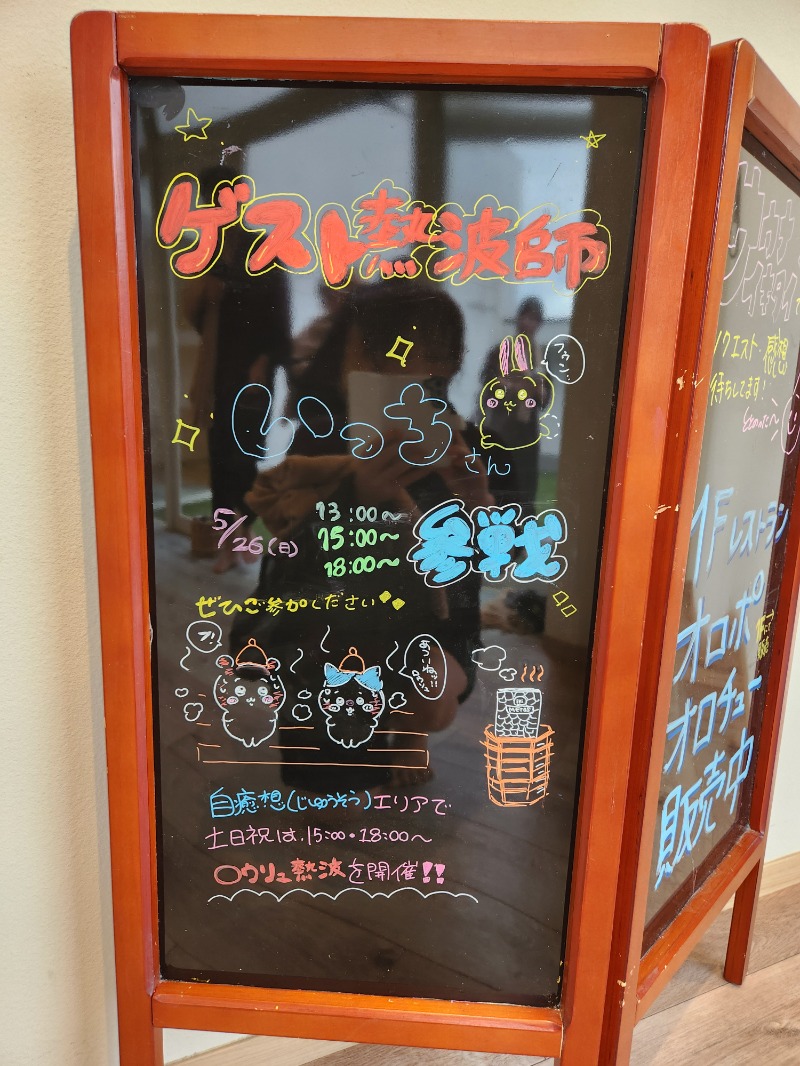 ゲスト熱波師
フゥン…
いっちさん
5/26(日)
13:00〜
15:00〜
18:00〜
参戦
ぜひご参加ください
フ!
あついねッ!!
自癒想(じゆうそう)エリアで
土日祝は、15:00・18:00〜
〇ウリュ熱波を開催!!
リクエスト 感想
待ちしてます!
1Fレストラン
オロポ
オロチュー
販売中